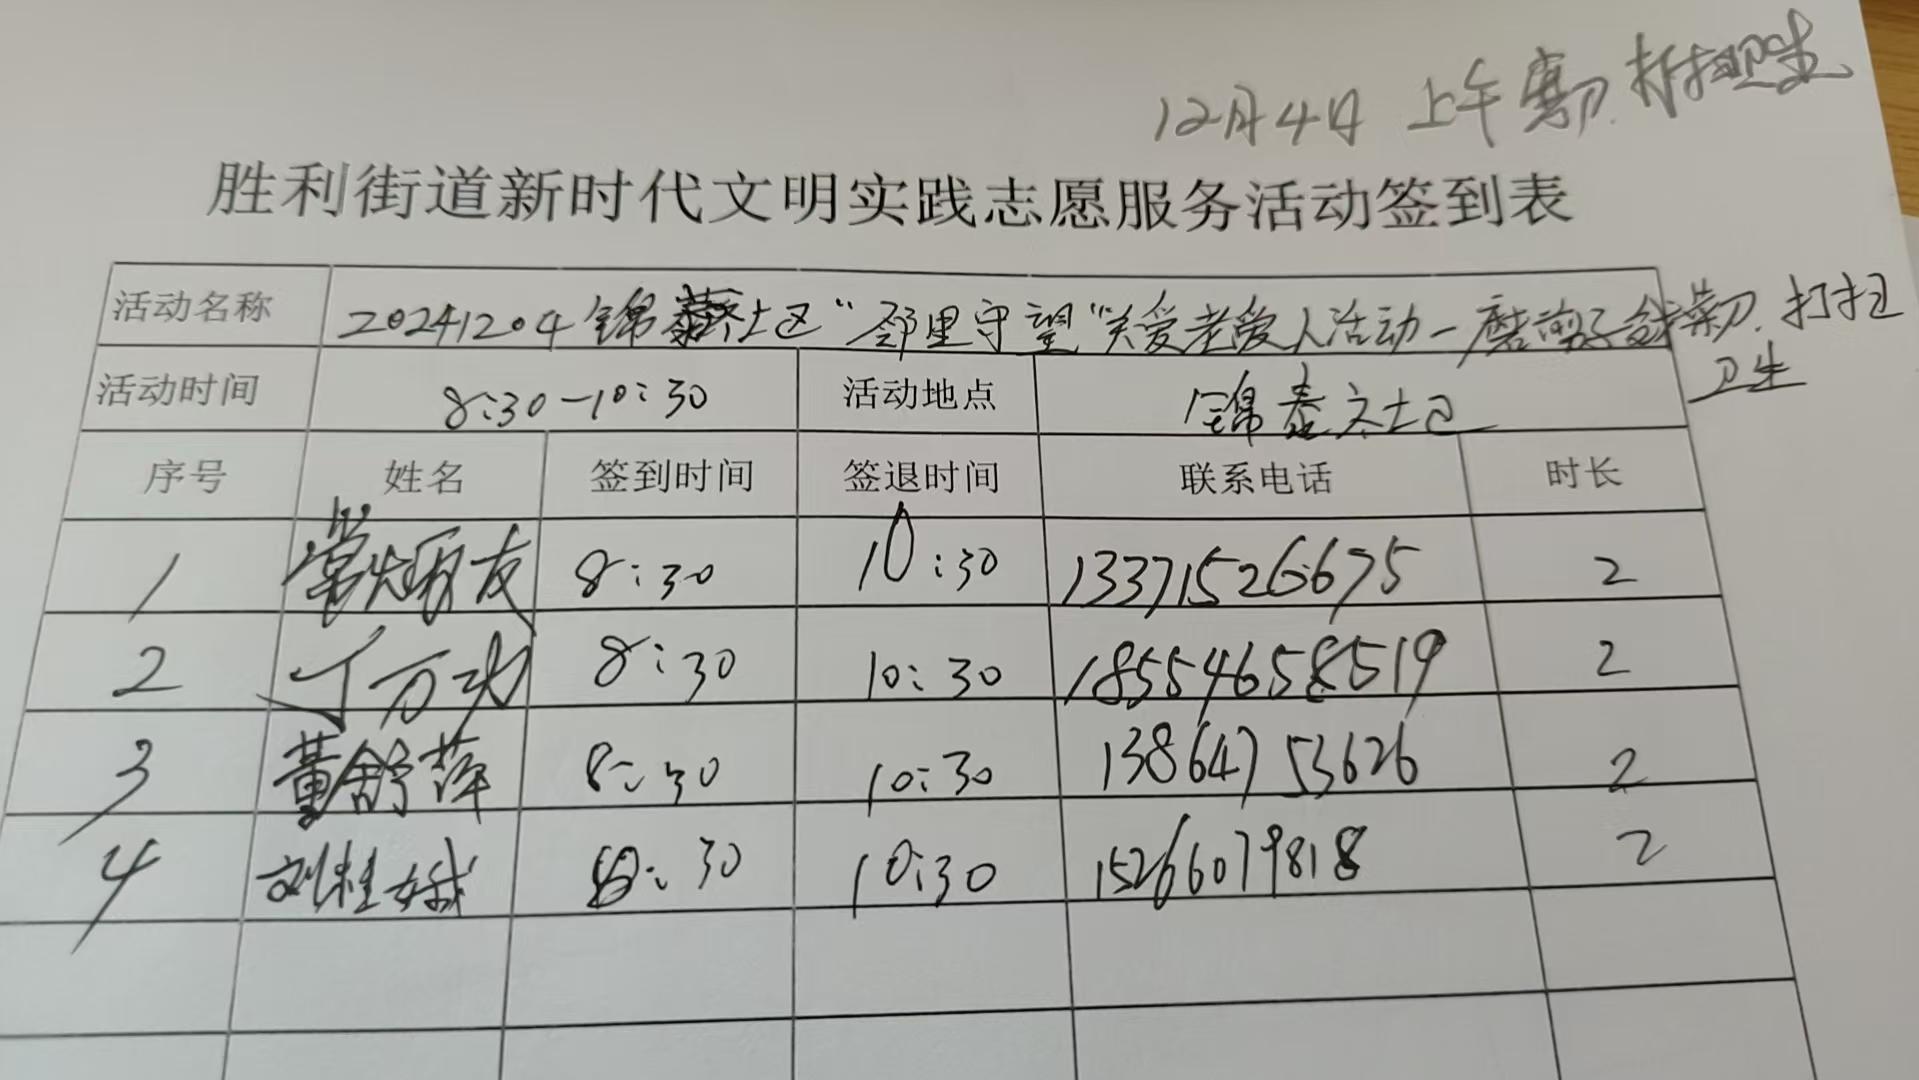 12月4日 上午 磨刀.打扫卫生
胜利街道新时代文明实践志愿服务活动签到表
活动名称 20241204锦泰社区“邻里守望”关爱老爱人活动—磨剪子戗菜刀.打扫
卫生
活动时间 8:30—10:30 活动地点 锦泰社区
序号 姓名 签到时间 签退时间 联系电话 时长
1 常炳友 8:30 10:30 13371526675 2
2 丁万功 8:30 10:30 18554658519 2
3 董舒萍 8:30 10:30 13864753626 2
4 刘桂娥 8:30 10:30 15266079818 2